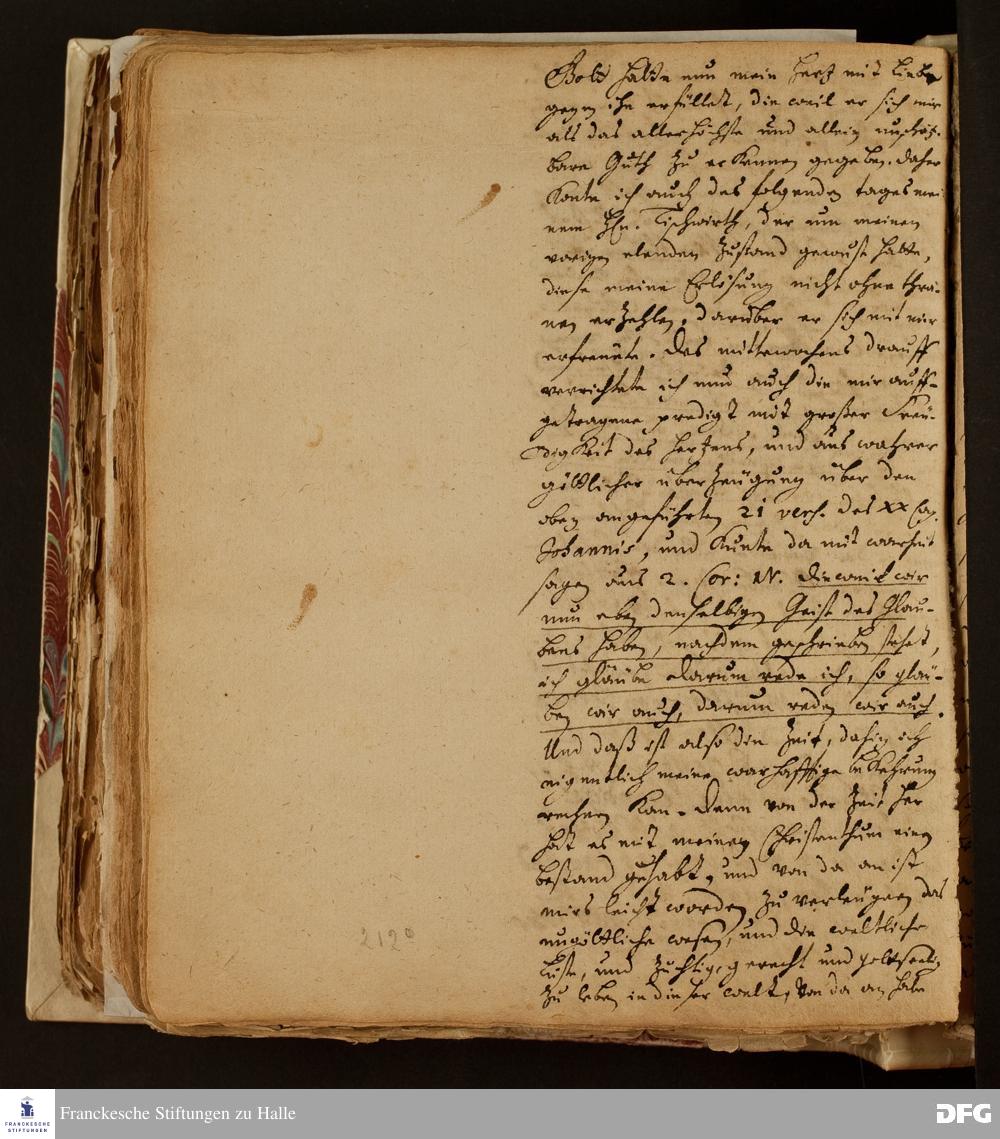 Gott hatte nun mein Hertz mit Liebe
gegen ihn erfüllet, die weil er sich mir
als das allerhöchste und allein unschätz-
bare Guth zu erkennen gegeben. Daher
konte ich auch des folgenden tages mei
nem Hn. Tischwirth, der um meinen
vorigen elenden Zustand gewust hatte,
diese meine Erlösung nicht ohne thrä-
nen erzehlen, darüber er sich mit mir
erfreuete. Des mittewochens drauff
verrichtete ich nun auch die mir auff-
getragene predigt mit großer Freu-
digkeit des Hertzens, und aus wahrer
göttlicher überzeugung über den
oben angeführten 21 vers. des XX Cap.
Johannis, und kunte da mit warheit
sagen aus 2. Cor: IV. Dieweil wir
nun eben denselbigen Geist des Glau-
bens haben, nachdem geschrieben stehet,
ich gläube darum rede ich, so gläu-
ben wir auch, darum reden wir auch.
Und daß ist also die Zeit, dahin ich
eigentlich meine warhafftige bekehrung
rechnen kan. Denn von der Zeit her
hat es mit meinem Christenthum einen
bestand gehabt, und von da an ist
mirs leicht worden zu verleugnen das
ungöttliche wesen, und die weltliche
Lüste, und züchtig, gerecht und gottseelig
zu leben in dieser welt, von da an habe
212v
Franckesche Stiftungen zu Halle
FRANCKESCHE
STIFTUNGEN
DFG